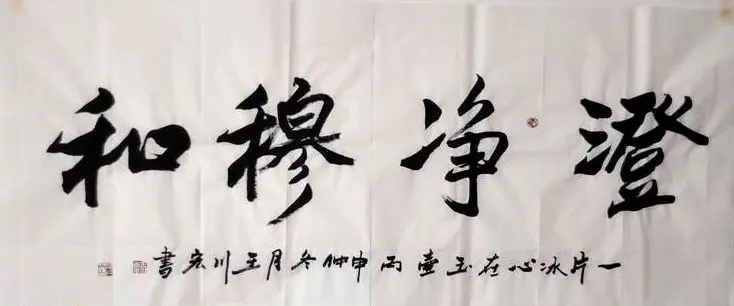 澄净穆和
一片冰心在玉壶丙申仲冬月王川宏書